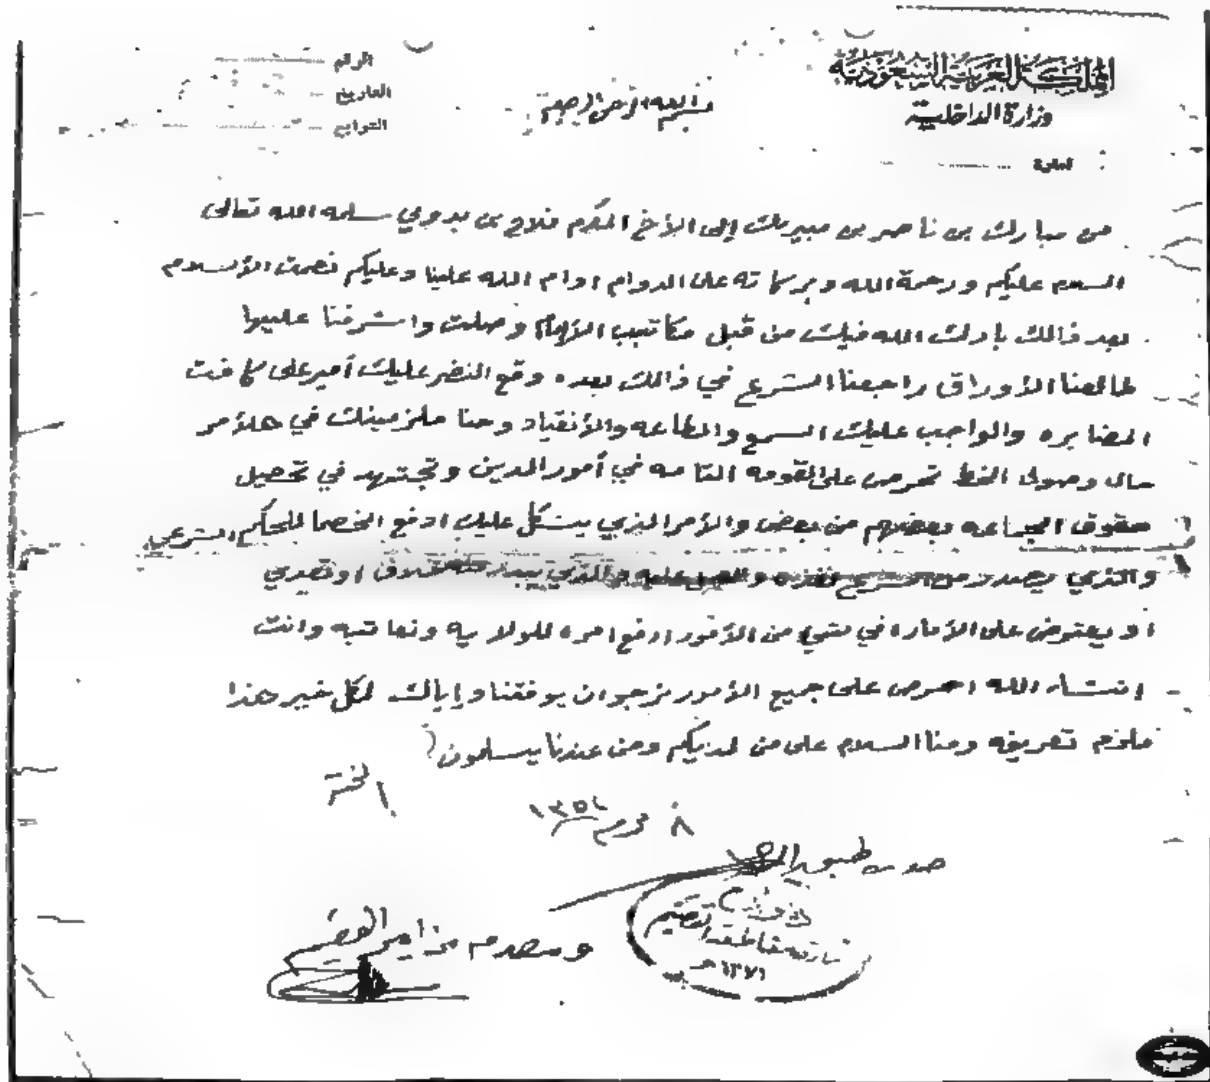 المملكة العربية السعودية
وزارة الداخلية
الرقم
التاريخ
التوابع
بسم الله الرحمن الرحيم
من مبارك بن ناصر بن مبيريك إلى الأخ المكرم فلاح بن بدوي سلمه الله تعالى
السلام عليكم ورحمة الله وبركاته على الدوام ادام الله علينا وعليكم نعمت الأسلام
بعد ذالك بارك الله فيك من قبل مكاتيب وصلت واشرفنا عليها
طالعنا الأوراق راجعنا الشرع في ذالك بعده وقع النضر عليك أمير على كافت
المضابره والواجب عليك السمع والطاعه والأنقياد وحنا ملزمينك في هلأمر
حال وصول الخط تحرص على القومه التامه في أمور الدين وتجتهد في تحصيل
حقوق الجماعه بعضهم من بعض والأمر الذي يشكل عليك ادفع الخصما للحكم الشرعي
والذي يصدر من الشرع نفذه والذي خلاف او تعدي
او يعترض على الأماره في شي من الأمور ارفع امره للولايه ونعاتبه وانت
إنشاء الله احرص على جميع الأمور نرجوا ان يوفقنا وإياك لكل خير هذا
ملزم تعريفه ومنا السلام على من لديكم ومن عندنا يسلمون
الختم
٨ محرم ١٣٥٤
صورة طبق
امارة مقاطعة القصيم
١٣٧١هـ